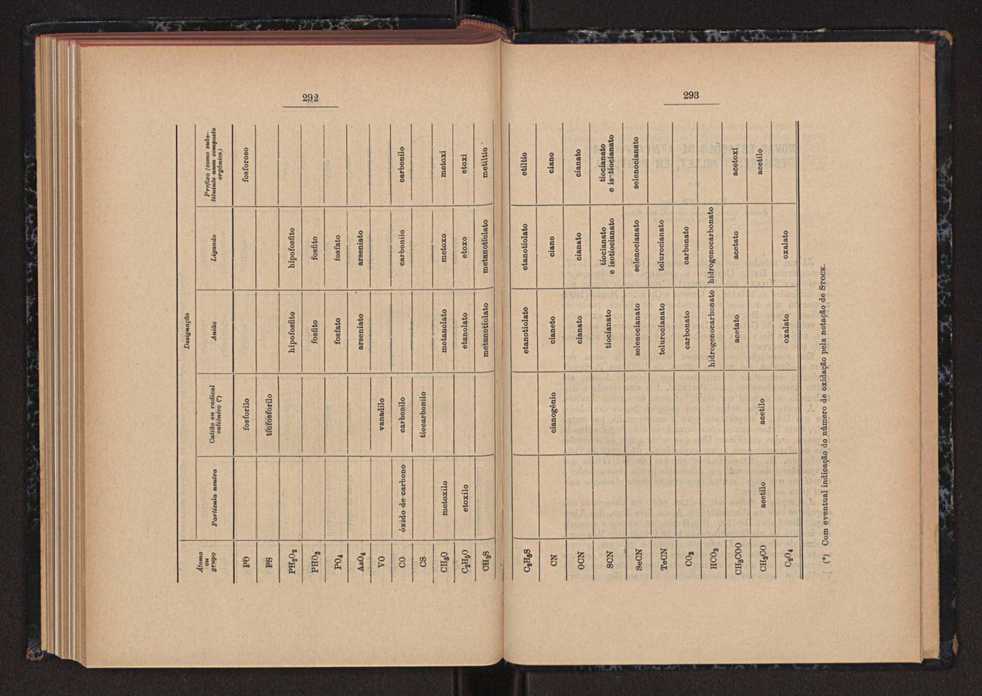 292
Designação
Átomo ou grupo | Partícula neutra | Catião ou radical catiónico (*) | Anião | Ligando | Prefixo (como substituinte num composto orgânico)
PO | fosforilo | fosforoso
PS | tiofosforilo
PH₂O₂ | hipofosfito | hipofosfito
PHO₃ | fosfito | fosfito
PO₄ | fosfato | fosfato
AsO₄ | arseniato | arseniato
VO | vanadilo
CO | óxido de carbono | carbonilo | carbonilo | carbonilo
CS | tiocarbonilo
CH₃O | metoxilo | metanolato | metoxo | metoxi
C₂H₅O | etoxilo | etanolato | etoxo | etoxi
CH₃S | metanotiolato | metanotiolato | metiltio
293
C₂H₅S | etanotiolato | etanotiolato | etiltio
CN | cianogénio | cianeto | ciano | ciano
OCN | cianato | cianato | cianato
SCN | tiocianato | tiocianato e isotiocianato | tiocianato e isotiocianato
SeCN | selenocianato | selenocianato | selenocianato
TeCN | telurocianato | telurocianato
CO₃ | carbonato | carbonato
HCO₃ | hidrogenocarbonato | hidrogenocarbonato
CH₃COO | acetato | acetato | acetoxi
CH₃CO | acetilo | acetilo | acetilo
C₂O₄ | oxalato | oxalato
(*) Com eventual indicação do número de oxidação pela notação de STOCK.